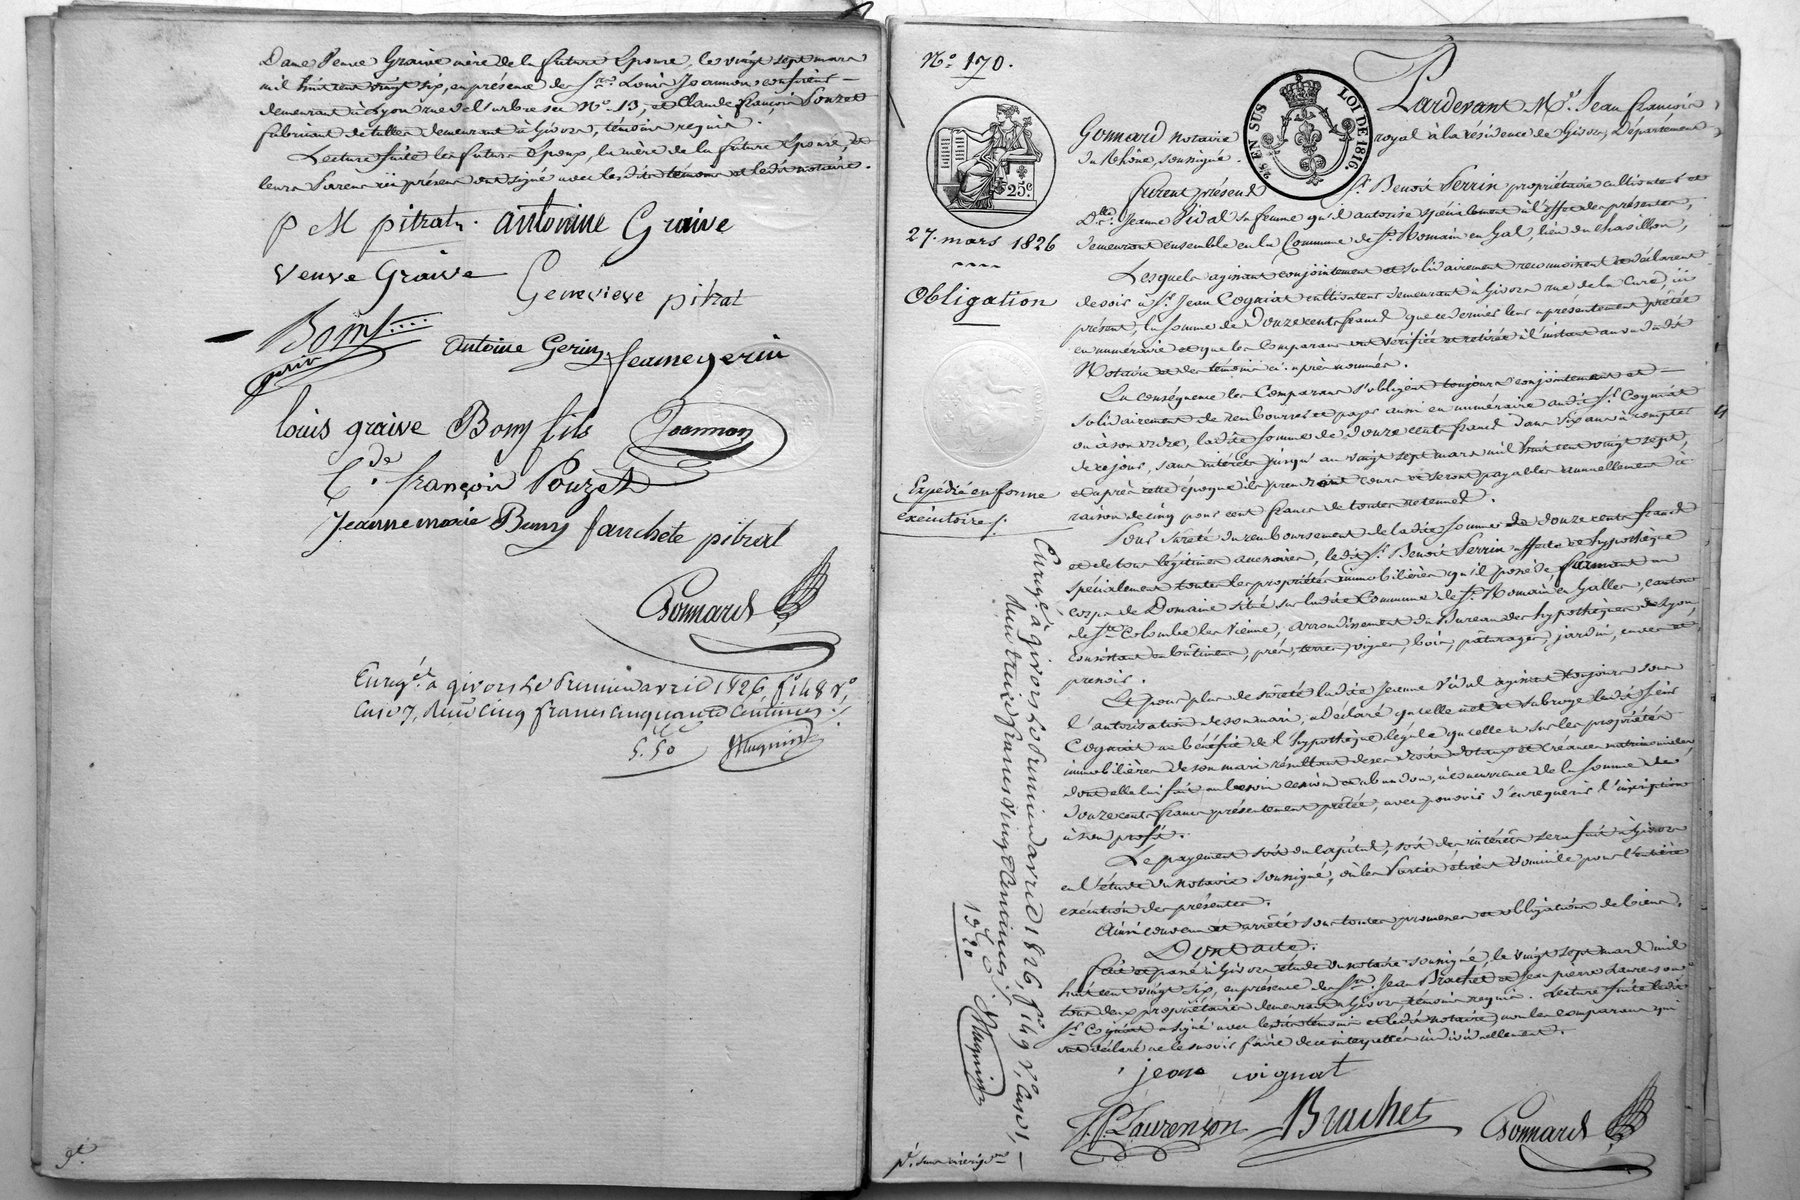 Dame veuve Graive mère de la future Epouse, le vingt sept mars
mil huit cent vingt six, en présence de Srs Louis Joannon confiseur
demeurant à Lyon rue de l'arbre sec No. 13, et Claude françois Pouzet
fabricant de tulles demeurant à Givors, témoins requis.
Lecture faite les futurs Epoux, la mère de la future Epouse, et
leurs Parens ici présens ont signé avec lesdits témoins et ledit notaire.
P M pitrat. Antoinne Graive
veuve Graive Genevieve pitrat
Bony
père
antoine Gerin Jeanne gerin
louis graive Bony fils Joannon
C.de françois Pouzet
Jeanne marie Bony fanchete pitrat
Gonnard
Enregé. à givors Le Premier avril 1826, fo. 148 Vo,
Case 7, Reçu Cinq francs Cinquante Centimes.
5.50
No. 170.
Pardevant Me. Jean françois
Gonnard notaire royal à la résidence de Givors, Département
du Rhône, soussigné.
25 EN SUS
LOI DE 1816.
25c
27. mars 1826
Obligation
Expédié en forme
exécutoire.
furent présens Sr. Benoit Perrin propriétaire cultivateur et
Dlle. Jeanne Vidal sa femme qu'il autorise spécialement à l'effet des présentes,
demeurant ensemble en la Commune de St. Romain en Gal, lieu du
Lesquels agissant conjointement et solidairement reconnoissent et déclarent
devoir à Sr. Jean Cognat cultivateur demeurant à Givors rue de la Cure, ici
présent, la somme de Douze cents francs que ce dernier leur a présentement prêtée
en numéraire et que les Comparans ont vérifiée et retirée à l'instant au vu dudit
Notaire et des témoins ci-après nommés.
En conséquence les Comparans s'obligent toujours conjointement et
solidairement de rembourser et payer aussi en numéraire audit Sr. Cognat
ou à son ordre, ladite somme de douze cents francs dans six ans à compter
de ce jour, sans intérêts jusqu'au vingt sept mars mil huit cent vingt sept,
et après cette époque ils prendront cours et seront payables annuellement à
raison de cinq pour cent francs de toutes retenues.
Pour sureté du remboursement de ladite somme de douze cents francs
et de tous légitimes accessoires, ledit Sr. Benoit Perrin affecte et hypothèque
spécialement toutes les propriétés immobilières qu'il possède formant un
corps de Domaine situé sur ladite Commune de St. Romain en Galles, canton
de Ste. Colombe les Vienne, arrondissement du Bureau des hypothèques de Lyon,
consistant en bâtimens, prés, terres, vignes, bois, pâturages, jardin, en ses
Et pour plus de sûreté ladite Jeanne Vidal agissant toujours sous
l'autorisation de son mari, a déclaré qu'elle met et subroge ledit sieur
Cognat au bénéfice de l'hypothèque légale qu'elle a sur les propriétés
immobilières de son mari résultant de ses droits dotaux et créances matrimoniales,
dont elle lui fait au besoin cession et abandon, à concurrence de la somme de
douze cents francs présentement prêtée, avec pouvoir d'en requérir l'inscription
à son profit.
Le payement soit du capital, soit des intérêts sera fait à Givors
en l'étude du notaire soussigné, où les Parties élisent domicile pour l'entière
exécution des présentes.
Ainsi convenu et arrêté sous toutes promesses et obligations de biens.
Dont acte.
fait et passé à Givors étude du notaire soussigné, le vingt sept mars mil
huit cent vingt six, en présence de Srs. Jean Brachet et Jean pierre Laurenson
tous deux propriétaires demeurant à Givors témoins requis. Lecture faite ledit
Sr. Cognat a signé avec lesdits témoins et ledit notaire, non les comparans qui
ont déclaré ne le savoir faire de ce interpellés individuellement.
jean cognat
J.P. Laurenson Brachet Gonnard
Enregé. à givors Le Premier avril 1826, fo. 149 Vo, Case 1,
Reçu treize francs Vingt Centimes.
13f 20